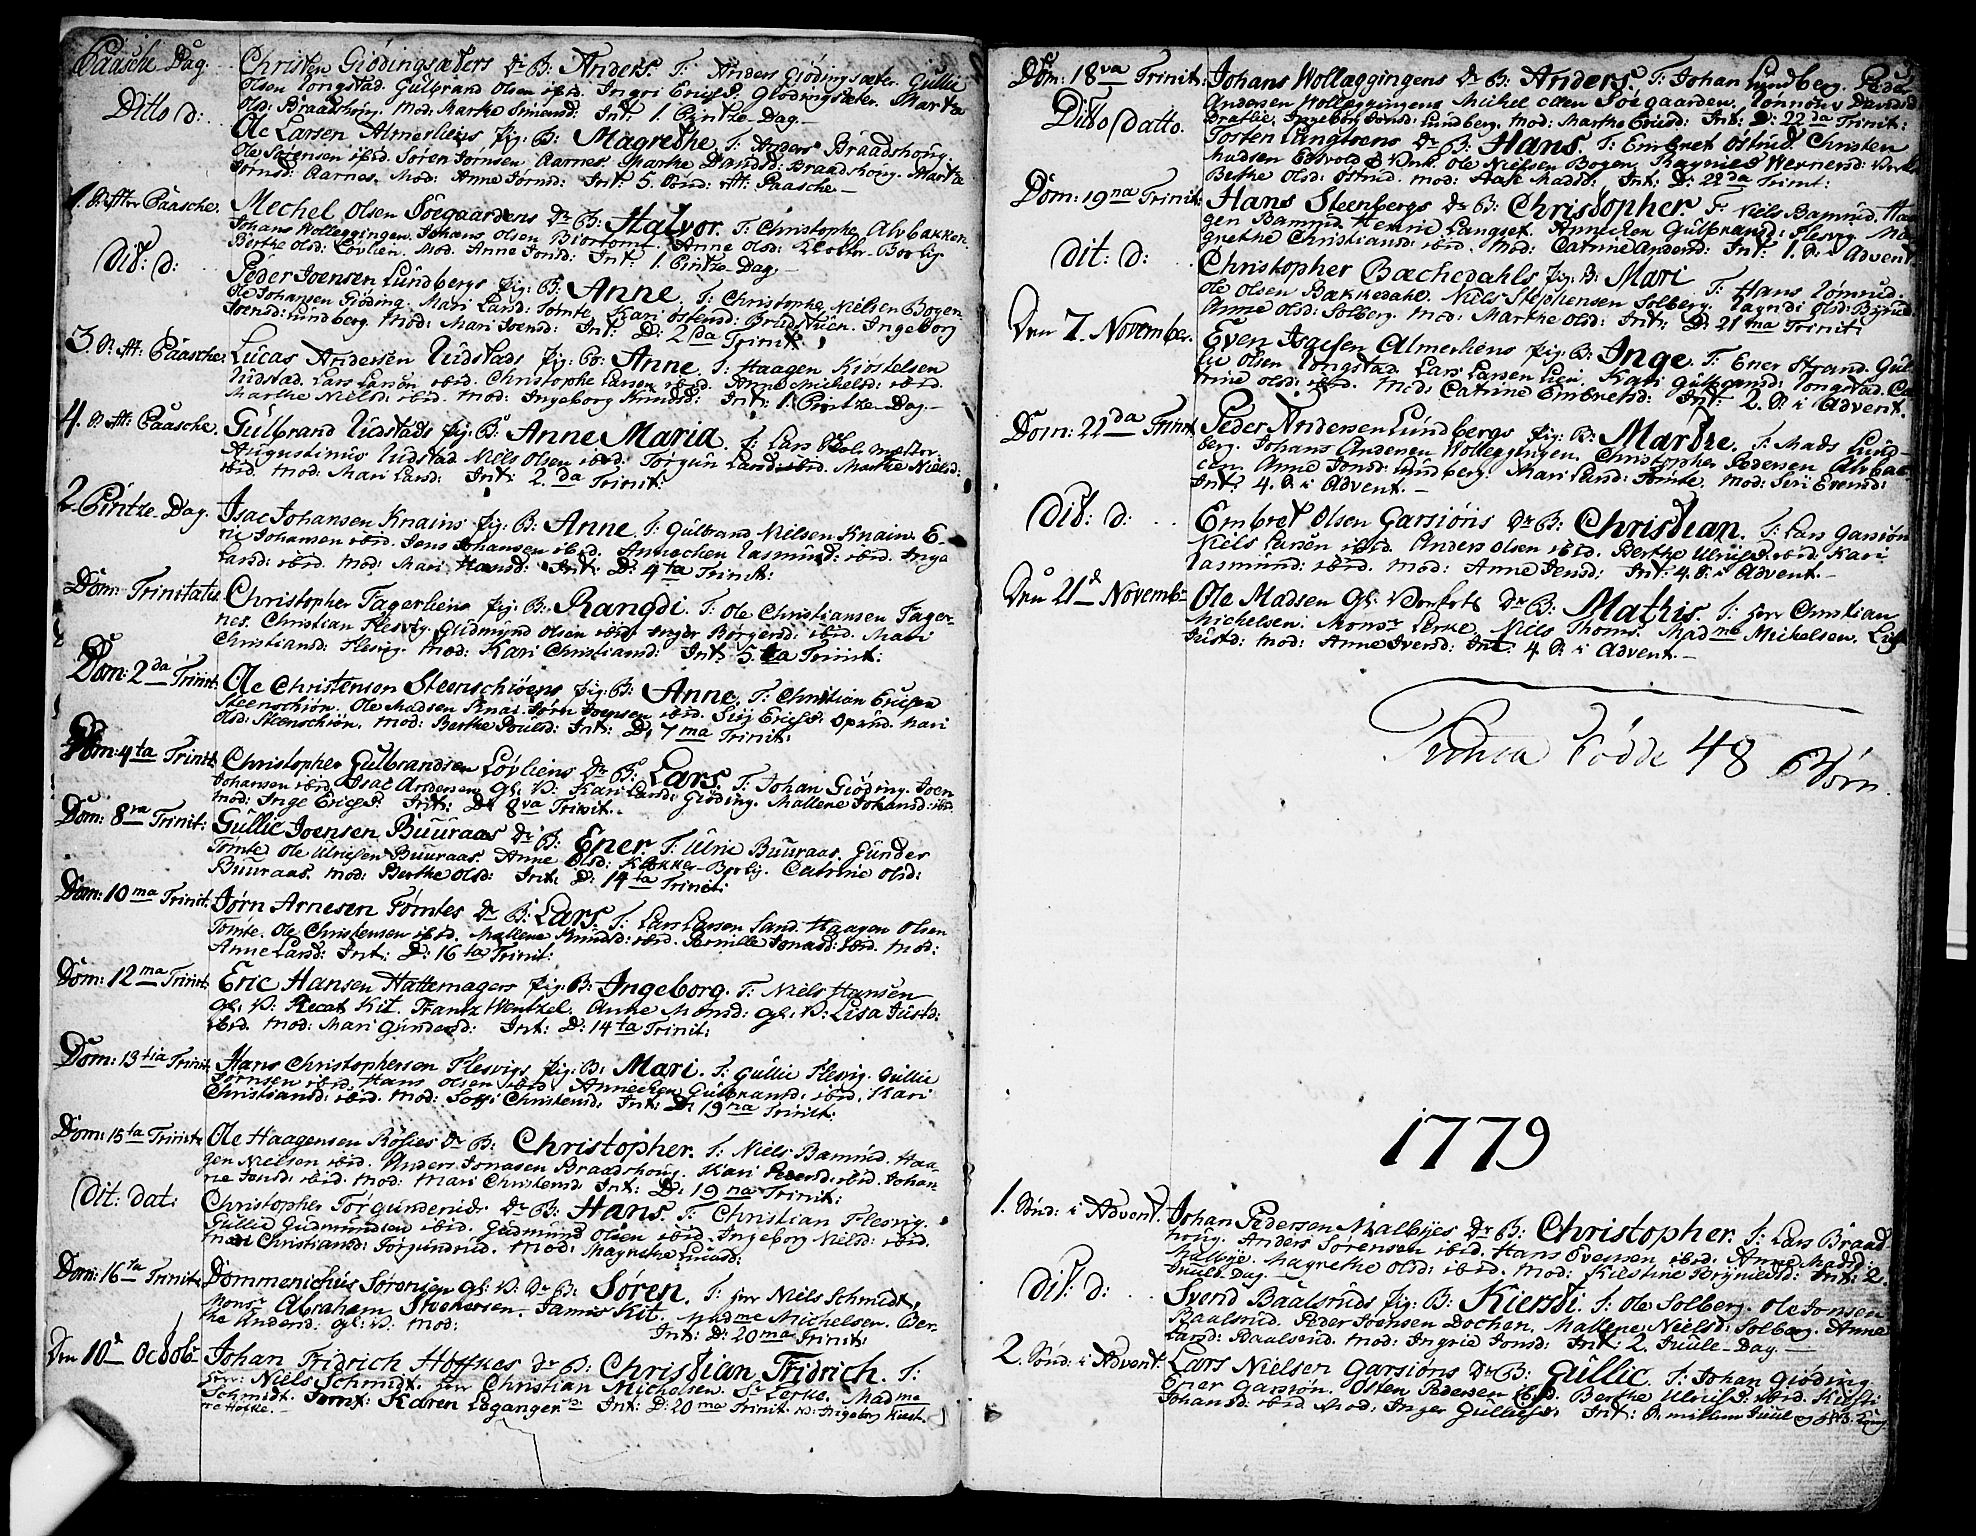 Paasche Dag. Christen Giödingsæters Dr B: Anders. T: Anders Giödingsæter. Gullic
Olsen Tongstad. Gulbrand Olsen ibid. Ingri Ericsd: Giödingsæter. Marthe
Olsd: Braadshoug. Mod: Marthe Simensd: Int: 1. Pintze-Dag.—
Ditto d: Ole Larsen Almerliens Pig: B: Magrethe. T: Anders Braadshoug.
Ole Sörensen ibid. Sören Jörnsen Aarnes. Marthe Davidsd: Braadshoug. Marthe
Jörnsd: Aarnes. Mod: Anne Jörnsd: Int: 5. Sönd: eft: Paasche—
1. S. efter Paasche. Mechel Olsen Söegaardens Dr B: Halvor. T: Christopher Alvbakken.
Johans Wolleggingen. Johans Olsen Biortomt. Anne Olsd: Klokker-Bolig
Berthe Olsd: Lövlien. Mod: Anne Jonsd: Int: 1. Pintze-Dag—
Dit: d: Peder Joensen Lundbergs Pig: B: Anne. T: Christopher Nielsen Bogen
Ole Johansen Giöding. Mari Larsd: Tomte. Kari Östensd: Brudstuen. Ingeborg
Joensd: Lundberg. Mod: Mari Joensd: Int: D: 2da Trinit:
3. S. eft: Paasche. Lucas Andersen Udstads Pig: B: Anne. T: Haagen Kiöstelsen
Udstad. Lars Larsen ibid. Christopher Larsen ibid. Anne Michelsd: ibid.
Marthe Nielsd: ibid. Mod: Ingeborg Knudsd: Int: 1. Pintze-Dag—
4. S. eft: Paasche. Gulbrand Udstads Pig: B: Anne Maria. T: Lars Skolemester.
Augustinus Udstad. Niels Olsen ibid. Torgun Larsd: ibid. Marthe Nielsd:
ibid. Mod: Mari Larsd: Int: 2.da Trinit:
2. Pintze-Dag. Isac Johansen Knains Pig: B: Anne. T: Gulbrand Nielsen Knain. E-
ric Johansen ibid. Jens Johansen ibid. Annechen Rasmusd: ibid. Inge
Larsd: ibid. Mod: Mari Hansd: Int: D: 4ta Trinit:
Dom: Trinitatis. Christopher Fagerliens Pig: B: Rangdi. T: Ole Christiansen Fager-
nes. Christian Flesvig. Gudmund Olsen ibid. Inger Börgersd: ibid. Mari
Christiansd: Flesvig. Mod: Kari Christiansd: Int: 5ta Trinit:
Dom: 2da Trinit: Ole Christensen Steenschiöens Pig: B: Anne. T: Christian Ericsen
Steenschiön. Ole Madsen Knai. Jörn Joensen ibid. Siri Ericsd: Opsund. Mari
Olsd: Steenschiön. Mod: Berthe Poulsd: Int: D: 7ma Trinit:
Dom: 4ta Trinit: Christopher Gulbrandsen Lövliens Dr B: Lars. T: Johan Giöding. Joen
Johansen ibid. Isac Andersen Gl: V: Kari Larsd: Giöding. Mallene Johansd: ibid.
Mod: Inge Ericsd: Int: D: 8va Trinit.
Dom: 8va Trinit: Gullic Joensen Buuraas Dr B: Ener. T: Ulric Buuraas. Gunder
Tomte. Ole Ulricsen Buuraas. Anne Olsd: Klokker-Bolig. Catrine Olsd:
Buuraas. Mod: Berthe Olsd: Int: D: 14ta Trinit:
Dom: 10ma Trinit: Jörn Arnesen Tomtes Dr B: Lars. T: Lars Larsen Sand. Haagen Olsen
Tomte. Ole Christensen ibid. Mallene Knudsd: ibid. Pernille Jonasd: ibid. Mod:
Anne Larsd: Int: D: 16ta Trinit:
Dom: 12ma Trinit: Eric Hansen Hattemagers Pig: B: Ingeborg. T: Niels Hansen
Gl: V: Recat Kit. Frantz Wentzel. Anne Monsd: Gl: V: Lisa Justd:
ibid. Mod: Mari Gundersd: Int: D: 14ta Trinit:
Dom: 13tia Trinit: Hans Christophersen Flesvigs Pig: B: Mari. T: Gullic Flesvig. Gullic
Jörnsen ibid. Hans Olsen ibid. Annechen Gulbrandsd: ibid. Kari
Christiansd: ibid. Mod: Soffi Christensd: Int: D: 19na Trinit:
Dom: 15ta Trinit: Ole Haagensen Rösies Dr B: Christopher. T: Niels Bamrud. Haa-
gen Nielsen ibid. Anders Jonasen Braadshoug. Kari Pedersd: ibid. Johan-
ne Jonsd: ibid. Mod: Mari Christensd: Int: D: 19na Trinit:
Dit: dat: Christopher Torgunderuds Dr B: Hans. T: Christian Flesvig.
Gullic Gudmundsen ibid. Gudmund Olsen ibid. Ingeborg Nielsd: ibid.
Mari Christiansd: Torgundrud. Mod: Magrethe Lucasd:
Dom: 16ta Trinit: Dommenichus Sörensen Gl: V: Dr B: Sören. T: Hrr Niels Schmidt.
Monsr Abraham Stephensen. James Kit. Madme Michelsen. Ber-
the Andersd: Gl: V: Mod: Int: D: 20ma Trinit:
Den 10de Octobr Johan Fridrich Höffkes Dr B: Christian Fridrich. T:
Hrr: Niels Schmidt. Hrr Christian Michelsen. Sr Lerke. Madme
Schmidt. Jomf: Karen Legangern Int: D: 20ma Trinit: M: Ingeborg
re Höfke.—
Dom: 18va Trinit: Johans Wollaggingens Dr B: Anders. T: Johan Lundberg. Peder
Andersen Wolleggingens Michel Olsen Söegaarden. Rönnou Davidsd:
Braslie. Ingeborg Jonsd: Lundberg. Mod: Marthe Ericsd: Int: D: 22da Trinit:
Ditto datto. Torsten Langloens Dr B: Hans. T: Embret Östrud. Christen
Madsen Edsvold Værk. Ole Nielsen Bogen. Ragnild Wernersd: Værk.
Berthe Olsd: Östrud. Mod: Aase Madsd: Int: D: 22da Trinit:
Dom: 19na Trinit: Hans Steenbergs Dr B: Christopher. T: Niels Bamrud. Haa-
gen Bamrud. Henric Langset. Annechen Gulbrandsd: Flesvig. Ma-
grethe Christiansd: ibid. Mod: Catrine Andersd: Int: 1. S. i Advent
dit: d: Christopher Bæchedahls Pig: B: Mari T: Hans Römrud.
Ole Olsen Bækkedahl. Niels Stephensen Solberg. Rangdi Olsd: Byrud.
Anne Olsd: Solberg. Mod: Marthe Olsd: Int: D: 21ma Trinit:
Den 7. November. Even Isacsen Almerliens Pig: B: Inge. T: Ener Strand. Gul-
lic Olsen Tongstad. Lars Larsen Lieri. Kari Gulbrandsd: Tongstad. Ca-
trine Olsd: ibid. Mod: Catrine Embretsd: Int: 2. S. i Advent.
Dom: 22da Trinit: Peder Andersen Lundbergs Pig: B: Marthe. T: Mads Lund-
berg. Johans Andersen Wolleggingen. Christopher Pedersen Alvbak-
ken. Anne Jonsd: Lundberg. Mari Larsd: Tomte. Mod: Siri Evensd:
Int: 4. S. i Advent.—
Dit: d: Embret Olsen Garsiöns Dr B: Christian. T: Lars Garsiön
Niels Larsen ibid. Anders Olsen ibid. Berthe Ulricsd: ibid. Kari
Rasmusd: ibid. Mod: Anne Jensd: Int: 4. S. i Advent.—
Den 21de Novembr Ole Madsen Gl: Værkets Dr B: Mathis. T: Hrr Christian
Michelsen. Monsr Lerke. Niels Thoms: Madme Michelsen. Lisa
Justd: Mod: Anne Iversd: Int: 4. S. i Advent.—
Summa Födde 48 Börn.
1779
1. Sönd: i Advent. Johan Pedersen Malbyes Dr B: Christopher. T: Lars Braads-
houg. Anders Sörensen ibid. Hans Evensen ibid. Anne Madsd:
Malbye. Magrethe Olsd: ibid. Mod: Kiestine Brynildsd: Int: 2.
Juule-Dag.—
Dit: d: Svend Baalsruds Pig: B: Kiersti. T: Ole Solberg. Ole Jonsen
Baalsrud. Peder Iversen Dochen. Mallene Nielsd: Solberg. Anne
Larsd: Baalsrud. Mod: Ingrid Jonsd: Int: 2. Juule-Dag.—
2. Sönd: i Advent. Lars Nielsen Garsiöns Dr B: Gullic. T: Johan Giöding.
Ener Garsiön. Osten Pedersen ibid. Berthe Ulricsd: ibid. Kiersti
Johansd: ibid. Mod: Inger Gullicsd: Int: S. mellem Juul og